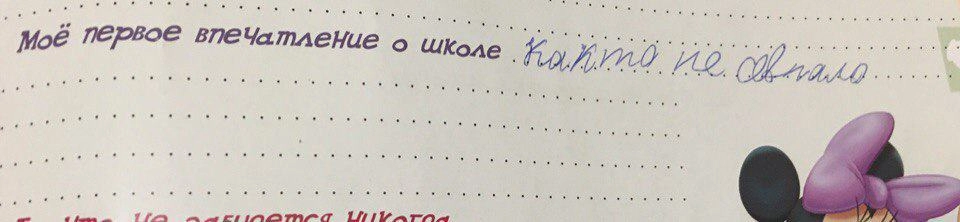 Моё первое впечатление о школе Как то не совпало
что не забудется никогда